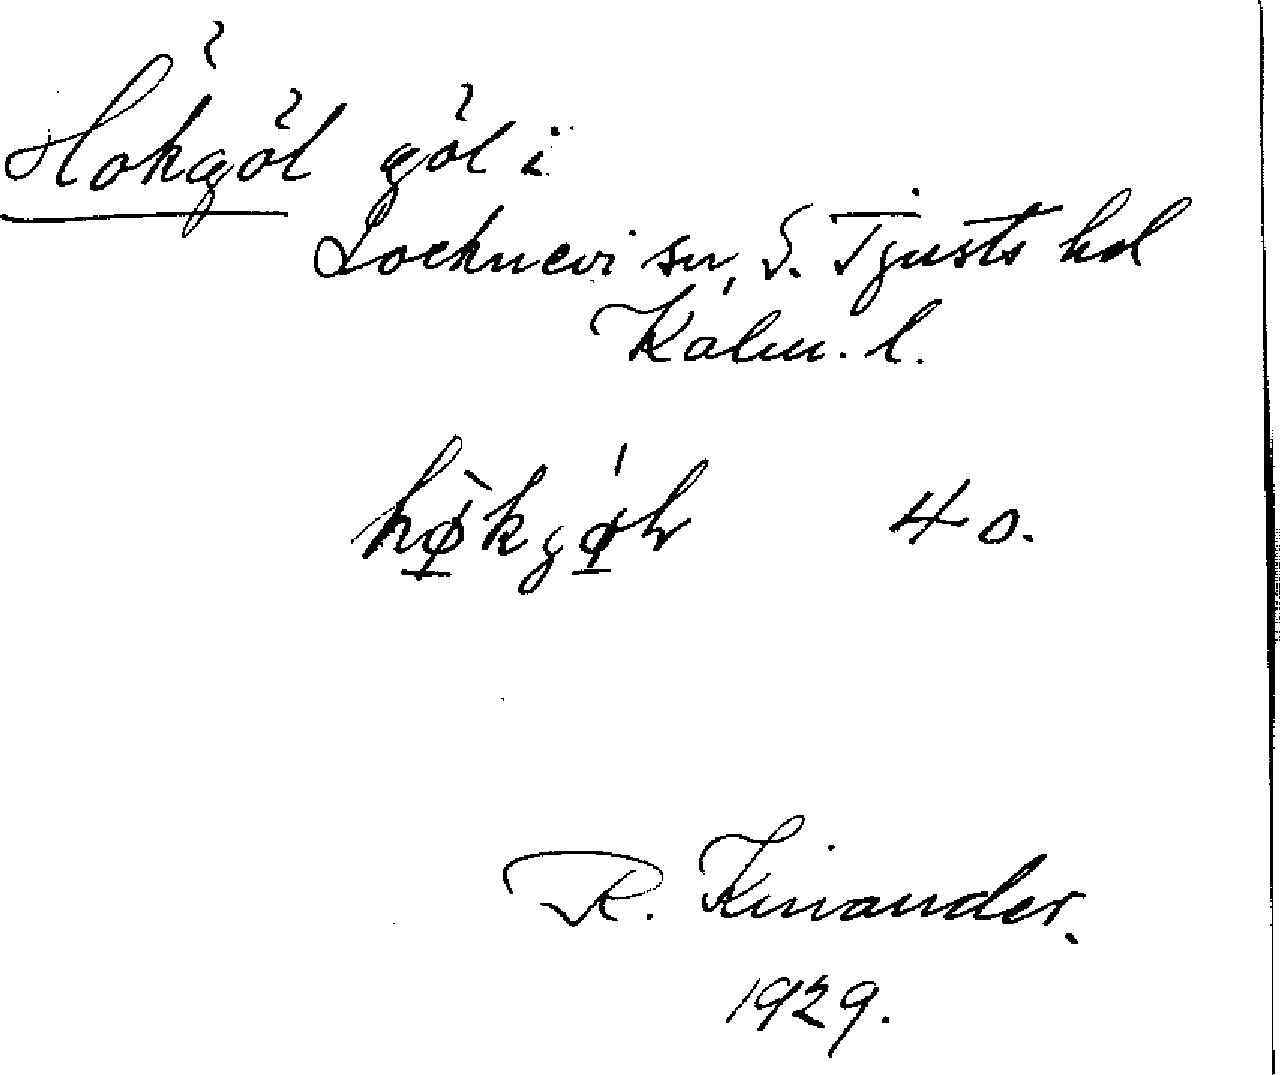 Hökgöl göl i
Locknevi sn, S. Tjusts hd
Kalm. l.
hø̀kgøl 40.
R. Kinander.
1929.